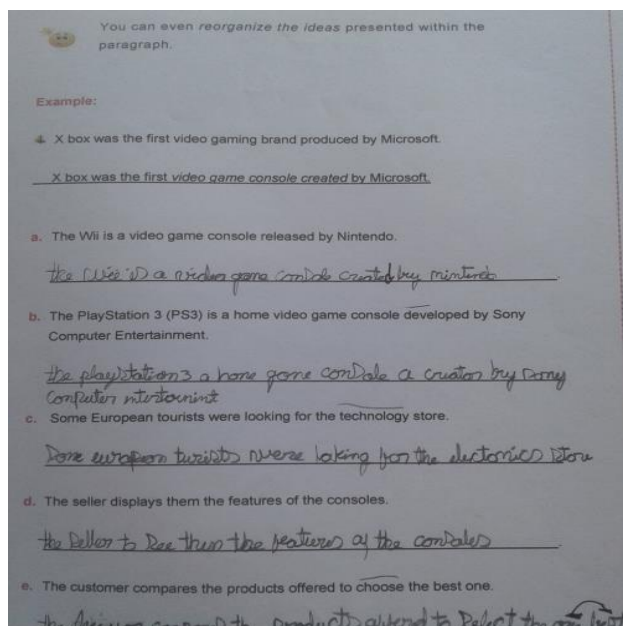 You can even reorganize the ideas presented within the
paragraph.
Example:
X box was the first video gaming brand produced by Microsoft.
X box was the first video game console created by Microsoft.
a. The Wii is a video game console released by Nintendo.
the wiee is a video game console created by nintendo
b. The PlayStation 3 (PS3) is a home video game console developed by Sony
Computer Entertainment.
the playstation3 a home game console a creator by sony
Computer
c. Some European tourists were looking for the technology store.
Some turists were loking for the electonics store
d. The seller displays them the features of the consoles.
the seller to see them the features of the consoles
e. The customer compares the products offered to choose the best one.
the products to select the best